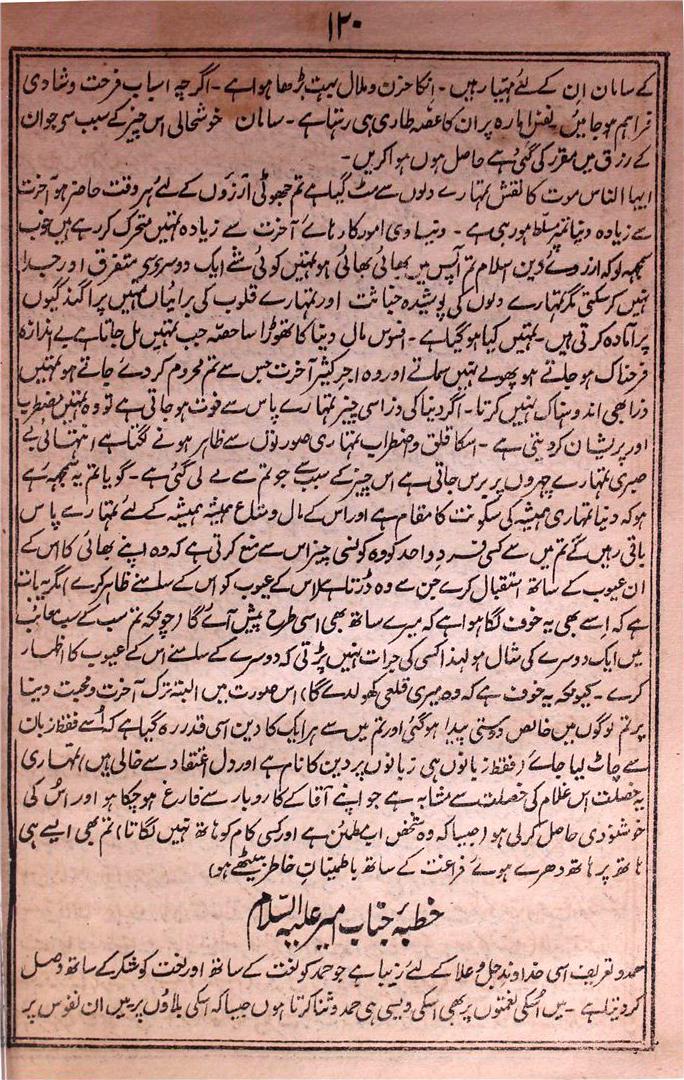 ۱۲۰
کے سامان ان کے لئے مہیا رہیں ۔ انکا حزن و ملال بہت بڑھا ہوا ہے ۔ اگرچہ اسباب فرحت و شادی
فراہم ہو جائیں نفس امارہ پر ان کا غصہ طاری ہی رہتا ہے ۔ سامان خوشحالی اس چیز کے سبب سے جو ان
کے رزق میں مقرر کی گئی ہے حاصل ہوں ہوا کریں ۔
ایہا الناس موت کا نقش تمہارے دلوں سے مٹ گیا ہے تم جھوٹی آرزؤں کے لئے ہر وقت حاضر ہو آخرت
سے زیادہ دنیا تم پر مسلط ہو رہی ہے ۔ دنیاوی امور کارہائے آخرت سے زیادہ تمہیں متحرک کر رہے ہیں خوب
سمجھ لو کہ از روئے دین اسلام تم آپس میں بھائی بھائی ہو تمہیں کوئی شے ایک دوسرے سے متفرق اور جدا
نہیں کر سکتی مگر تمہارے دلوں کی پوشیدہ خباثت اور تمہارے قلوب کی برائیاں تمہیں پراگندگیوں
پر آمادہ کرتی ہیں ۔ تمہیں کیا ہو گیا ہے ۔ افسوس مال دنیا کا تھوڑا سا حصہ جب تمہیں مل جاتا ہے بے اندازہ
فرحناک ہو جاتے ہو پھولے نہیں سماتے اور وہ اجر کثیر آخرت جس سے تم محروم کر دئے جاتے ہو تمہیں
ذرا بھی اندوہناک نہیں کرتا ۔ اگر دنیا کی ذرا سی چیز تمہارے پاس سے فوت ہو جاتی ہے تو وہ تمہیں مضطرب
اور پریشان کر دیتی ہے ۔ اسکا قلق و اضطراب تمہاری صورتوں سے ظاہر ہونے لگتا ہے انتہائی بے
صبری تمہارے چہروں پر برس جاتی ہے اس چیز کے سبب سے جو تم سے لے لی گئی ہے ۔ گویا تم یہ سمجھے
ہو کہ دنیا تمہاری ہمیشہ کی سکونت کا مقام ہے اور اس کے مال و متاع ہمیشہ ہمیشہ کے لئے تمہارے پاس
باقی رہیں گے تم میں سے کسی فرد واحد کو وہ کونسی چیز اس سے منع کرتی ہے کہ وہ اپنے بھائی کا اس کے
ان عیوب کے ساتھ استقبال کرے جن سے وہ ڈرتا ہے (اس کے عیوب کو اس کے سامنے ظاہر کرے) مگر یہ بات
ہے کہ اسے بھی یہ خوف لگا ہوا ہے کہ میرے ساتھ بھی اسی طرح پیش آئے گا (چونکہ تم سب کے سب معائب
میں ایک دوسرے کی مثال ہو لہذا کسی کی جرات نہیں پڑتی کہ دوسرے کے سامنے اس کے عیوب کا اظہار
کرے ۔ کیونکہ یہ خوف ہے کہ وہ میری قلعی کھول دے گا) اس صورت میں البتہ ترک آخرت و محبت دنیا
پر تم لوگوں میں خالص دوستی پیدا ہو گئی اور تم میں سے ہر ایک کا دین اسی قدر رہ گیا ہے کہ اُسے فقط زبان
سے چاٹ لیا جائے (فقط زبانوں ہی زبانوں پر دین کا نام ہے اور دل اعتقاد سے خالی ہیں) تمہاری
یہ خصلت اس غلام کی خصلت سے مشابہ ہے جو اپنے آقا کے کاروبار سے فارغ ہو چکا ہو اور اُس کی
خوشنودی حاصل کر لی ہو (جیسا کہ وہ شخص اب مطمئن ہے اور کسی کام کو ہاتھ نہیں لگاتا) تم بھی ایسے ہی
ہاتھ پر ہاتھ دھرے ہوئے فراغت کے ساتھ باطمینان خاطر بیٹھے ہو)
خطبہٴ جناب امیر علیہ السّلام
حمد و تعریف اسی خداوند جل و علا کے لئے زیبا ہے جو حمد کو نعت کے ساتھ اور نعمت کو شکر کے ساتھ وصل
کر دیتا ہے ۔ میں اُسکی نعمتوں پر بھی اسکی ویسی ہی حمد و ثنا کرتا ہوں جیسا کہ اسکی بلاؤں پر ۔ میں ان نفوس پر